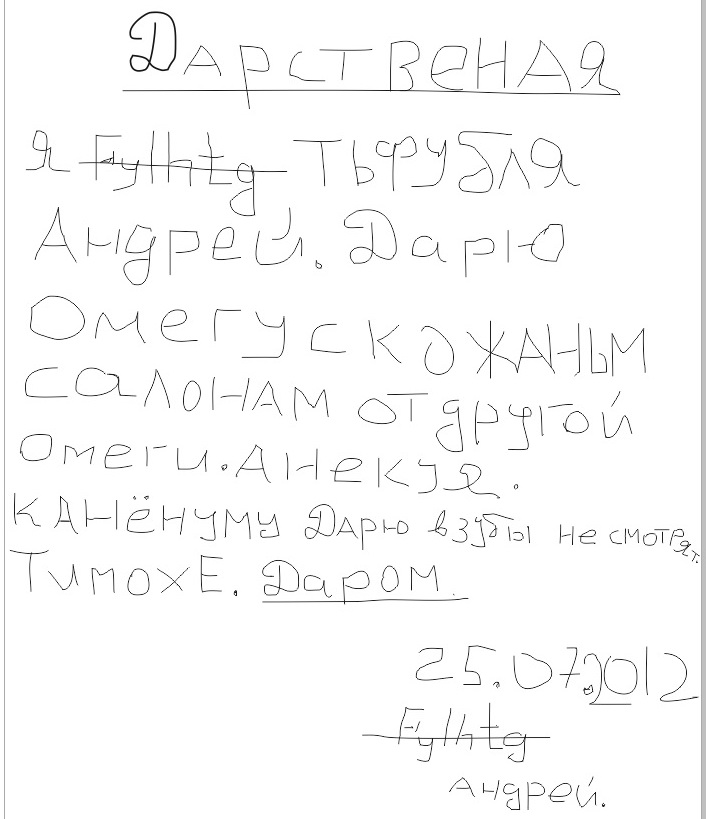 Дарственая
я Fylhtg Тьфубля
Андрей. Дарю
Омегу с кожаным
салонам от другой
омеги. Анекуя.
канёнуму Дарю в зубы не смотрят.
ТимохЕ. Даром.
25.07.2012
Fylhtg
Андрей.